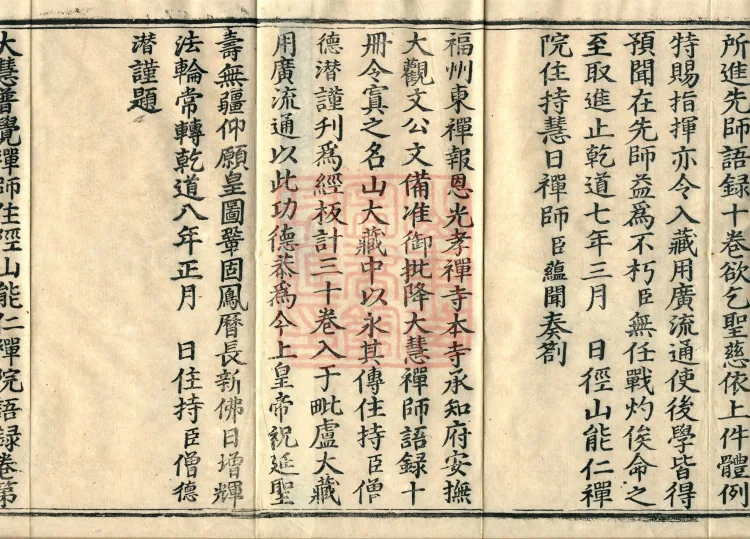 所進先師語録十卷欲乞聖慈依上件體例
特賜指揮亦令入藏用廣流通使後學皆得
預聞在先師益爲不朽臣無任戰灼俟命之
至取進止乾道七年三月 日徑山能仁禪
院住持慧日禪師臣蘊聞奏劄
福州東禪報恩光孝禪寺本寺承知府安撫
大觀文公文備准御批降大慧禪師語録十
冊令寘之名山大藏中以永其傳住持臣僧
德潜謹刊爲經板計三十卷入于毗盧大藏
用廣流通以此功德恭爲今上皇帝祝延聖
壽無疆仰願皇圖鞏固鳳曆長新佛日增輝
法輪常轉乾道八年正月 日住持臣僧德
潜謹題
大慧普覺禪師住徑山能仁禪院語録卷第